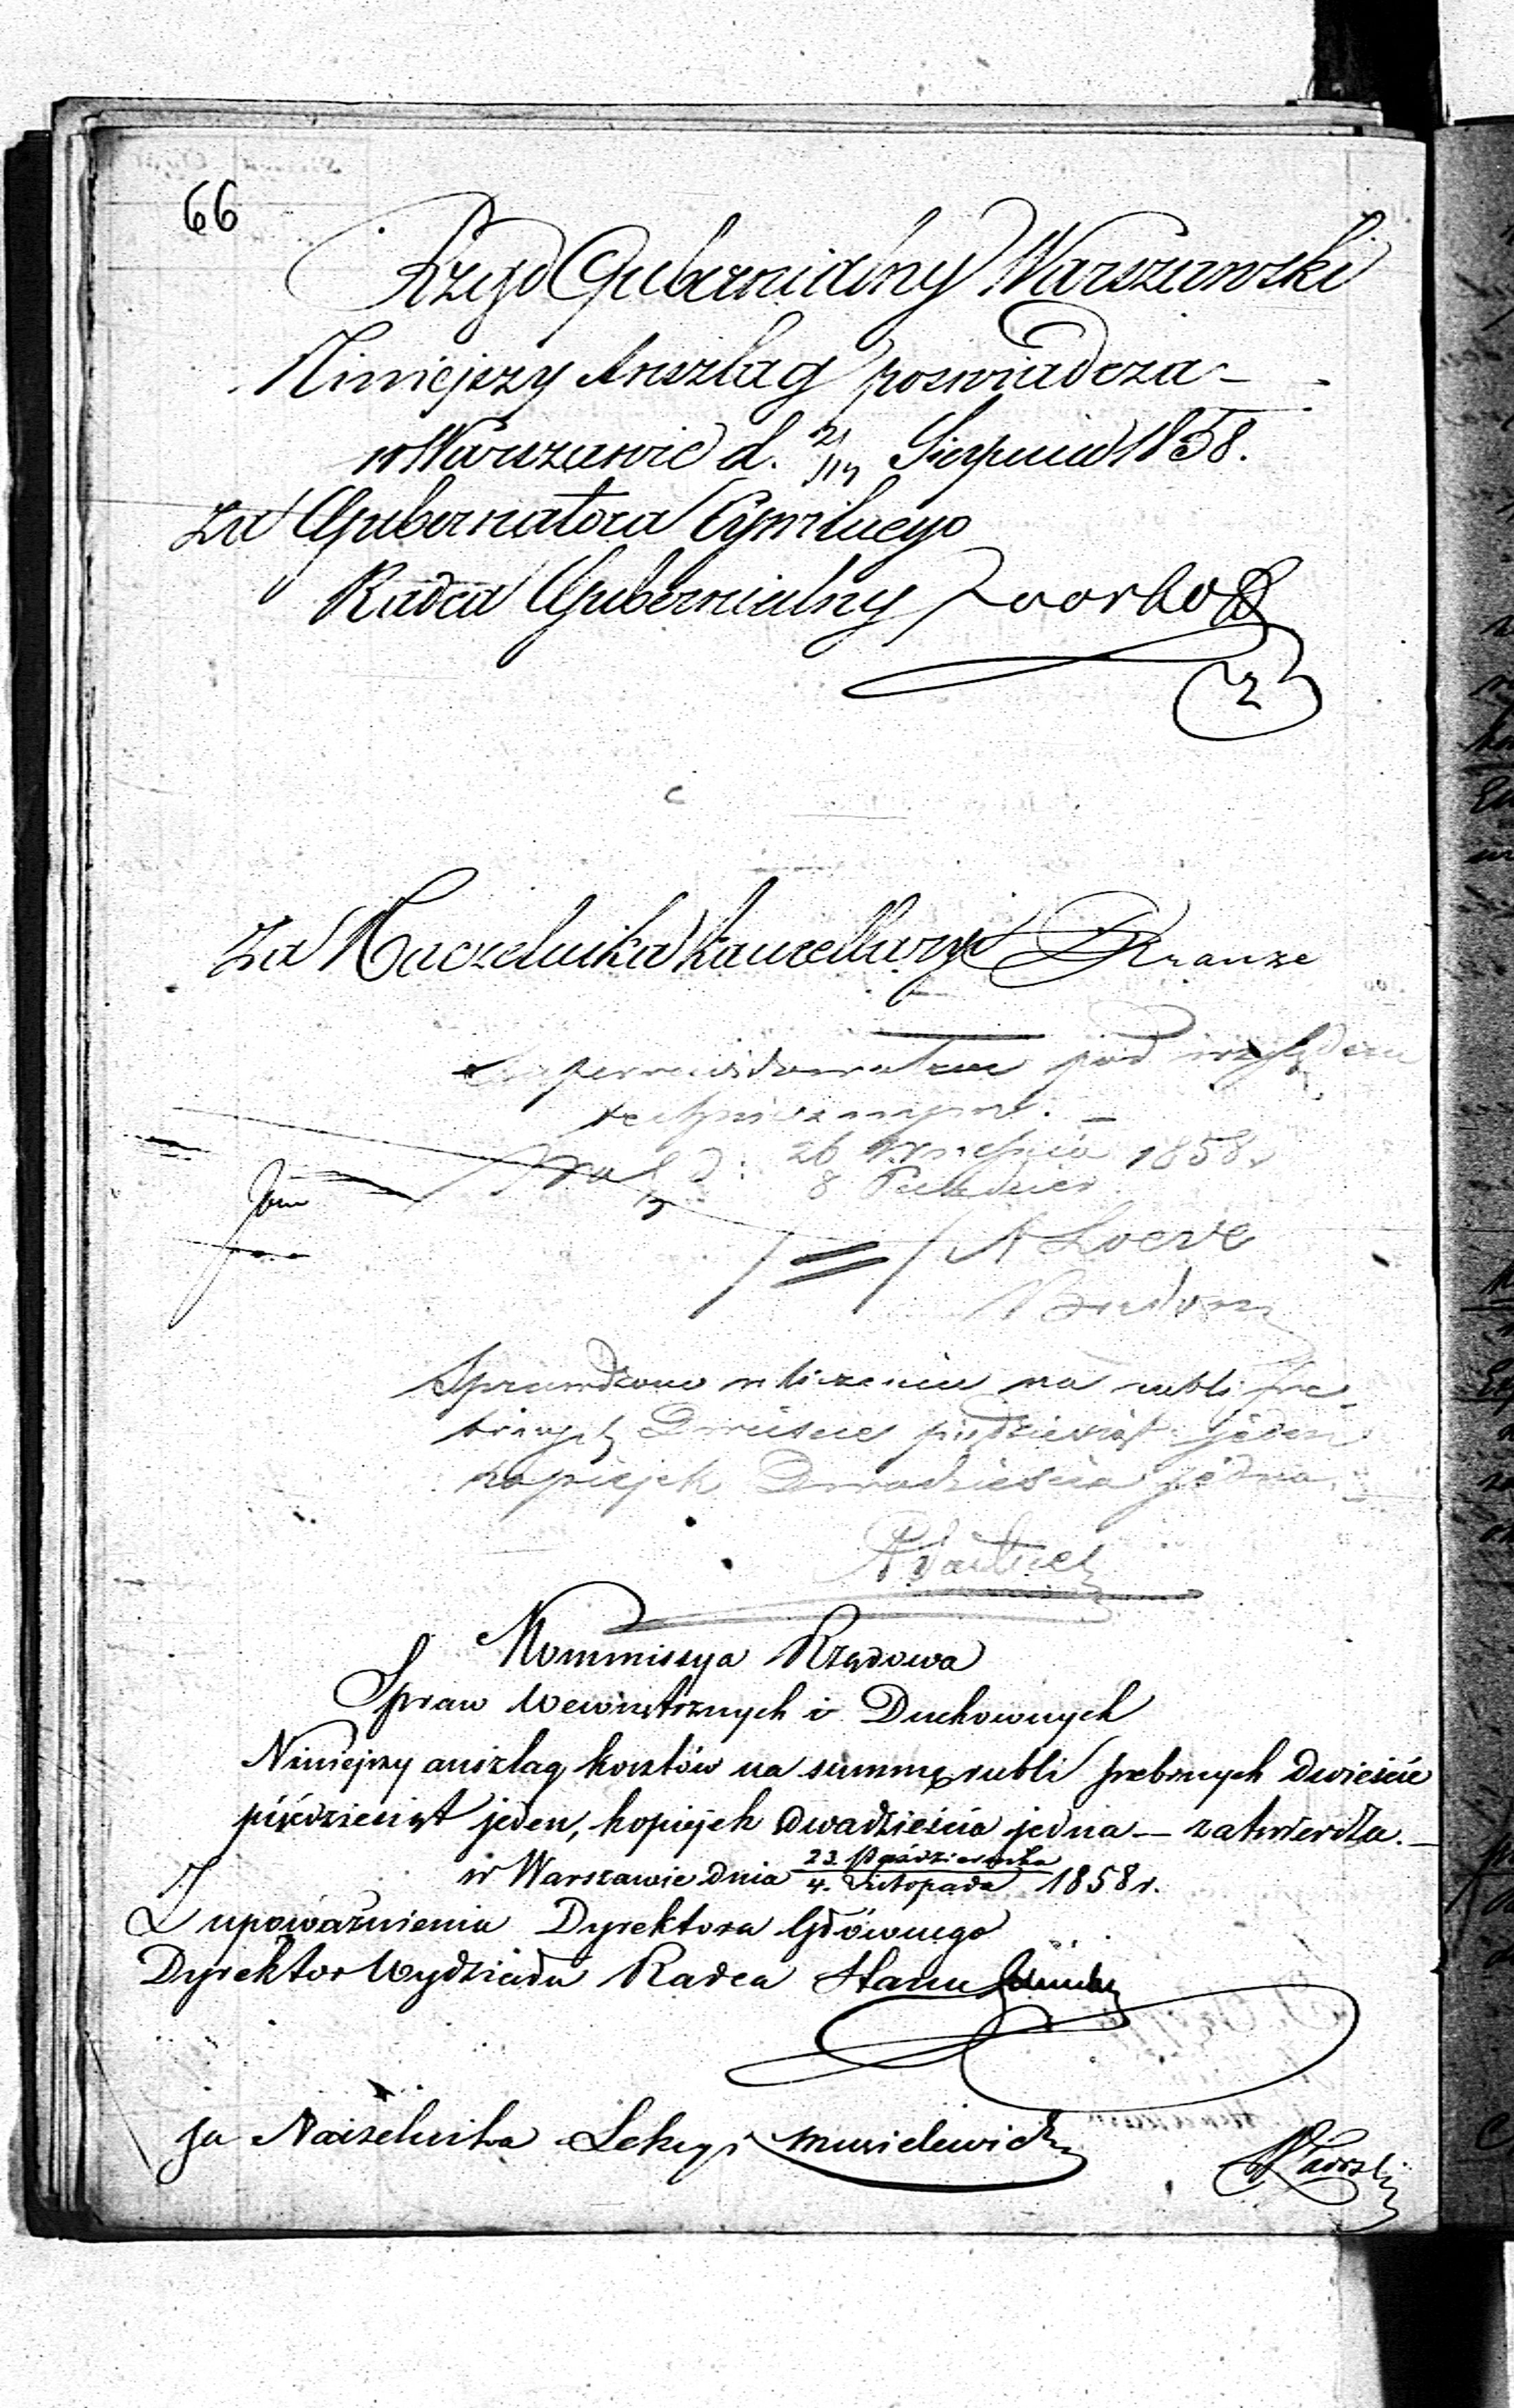 66
Rząd Gubernialny Warszawski
Niniejszy Anszlag poswiadcza –
w Warszawie d. 2/14 Sierpnia 1858.
za Gubernatora Cywilnego
Radca Gubernialny
Za Naczelnika Kancellaryi Krauze
Superrewidowano pod względem
technicznym. –
d: 26 Września 1858 r
8 Paździer
A Loeve
Sprawdzono w liczeniu na rubli sre-
brnych Dwieście pięćdziesiąt jeden
kopiejek Dwadzieścia jedna.
Kommissya Rządowa
Spraw Wewnętrznych i Duchownych
Niniejszy anszlag kosztów na summę rubli srebrnych dwieście
pięćdziesiąt jeden, kopiejek dwadzieścia jedna – zatwierdza. –
w Warszawie dnia 23. Października / 4. Listopada 1858 r.
Z upoważnienia Dyrektora Głównego
Dyrektor Wydziału Radca Stanu
za Naczelnika Sekcyi